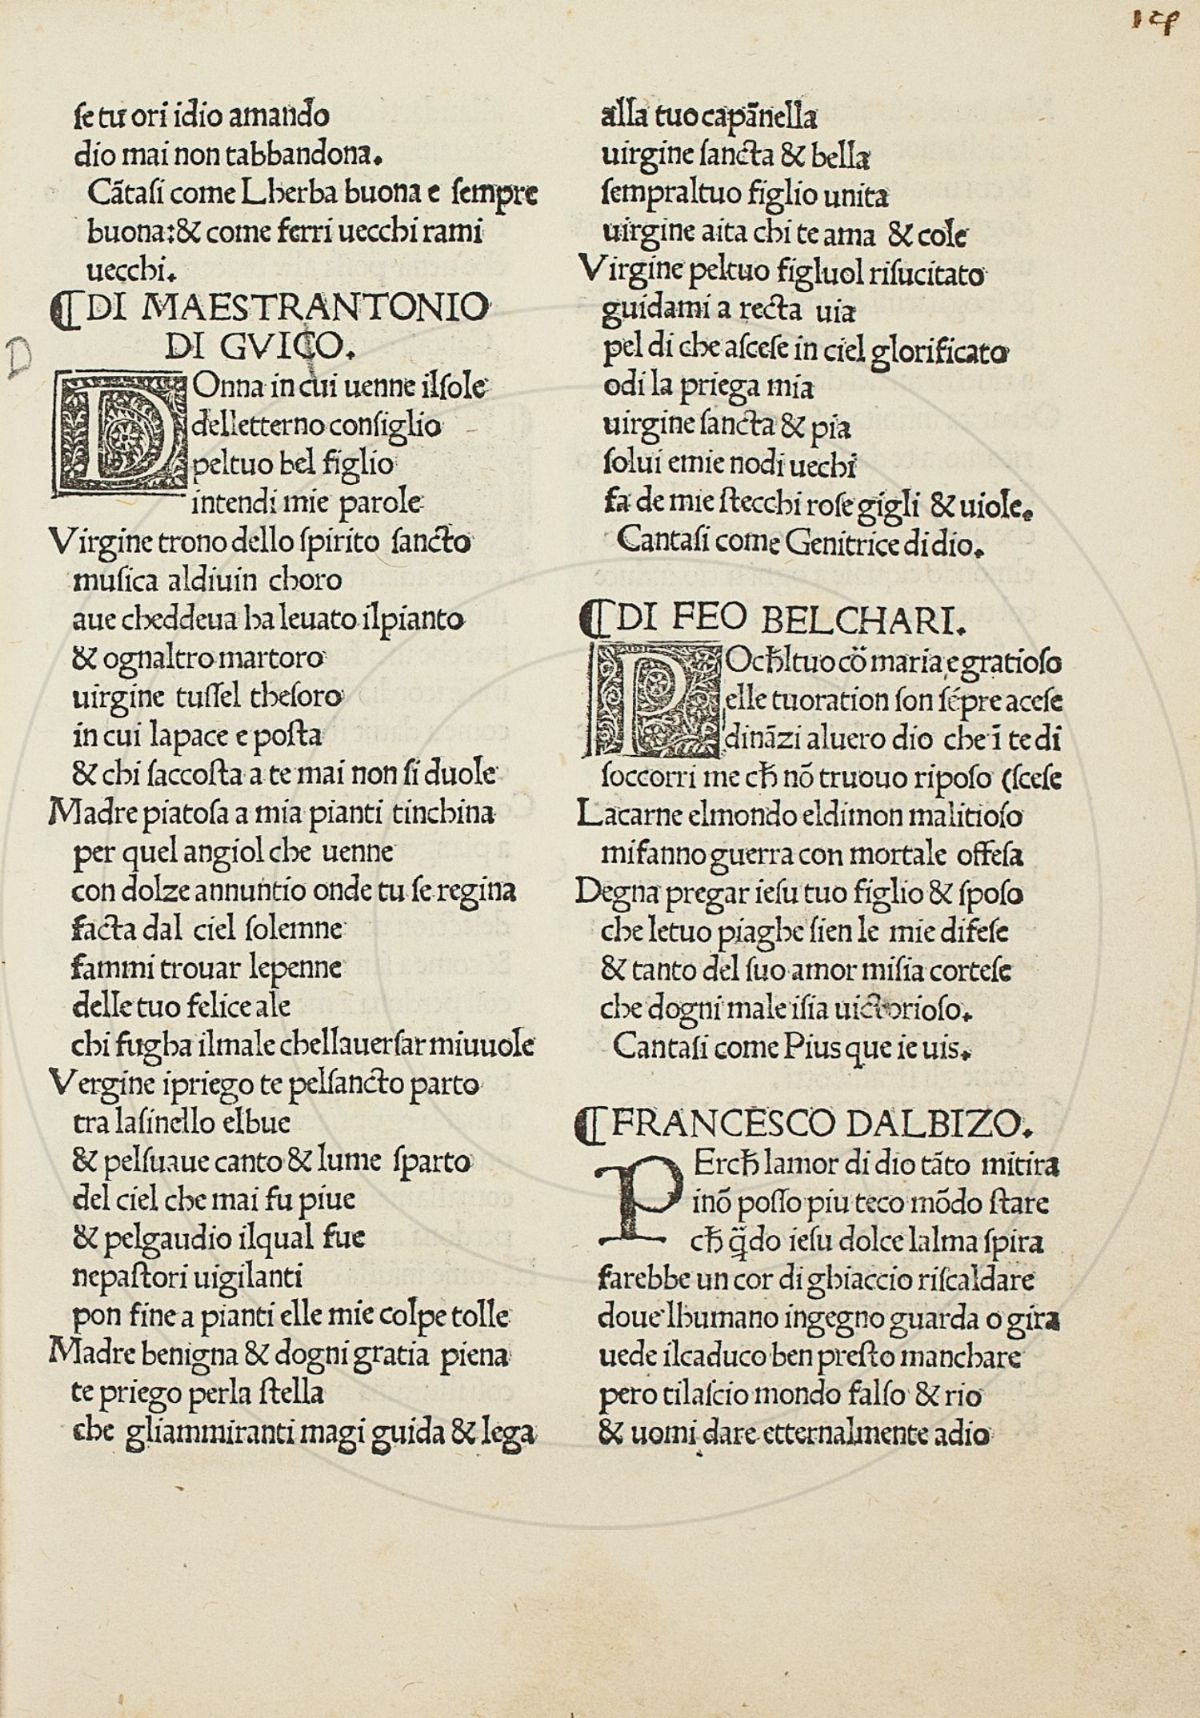 ſe tu ori idio amando
dio mai non tabbandona.
Cãtaſi come Lherba buona e ſempre
buona:& come ferri uecchi rami
uecchi.
¶DI MAESTRANTONIO
DI GVICO.
DOnna in cui uenne ilſole
delletterno conſiglio
peltuo bel figlio
intendi mie parole
Virgine trono dello ſpirito ſancto
muſica aldiuin choro
aue cheddeua ha leuato ilpianto
& ognaltro martoro
uirgine tuſſel theſoro
in cui lapace e poſta
& chi ſaccoſta a te mai non ſi duole
Madre piatoſa a mia pianti tinchina
per quel angiol che uenne
con dolze annuntio onde tu ſe regina
facta dal ciel ſolemne
fammi trouar lepenne
delle tuo felice ale
chi fugha ilmale chellauerſar miuuole
Vergine ipriego te pelſancto parto
tra laſinello elbue
& pelſuaue canto & lume ſparto
del ciel che mai fu piue
& pelgaudio ilqual fue
nepaſtori uigilanti
pon fine a pianti elle mie colpe tolle
Madre benigna & dogni gratia piena
te priego perla ſtella
che gliammiranti magi guida & lega
alla tuo capãnella
uirgine ſancta & bella
ſempraltuo figlio unita
uirgine aita chi te ama & cole
Virgine peltuo figluol riſucitato
guidami a recta uia
pel di che aſceſe in ciel glorificato
odi la priega mia
uirgine ſancta & pia
ſolui emie nodi uechi
fa de mie ſtecchi roſe gigli & uiole.
Cantaſi come Genitrice di dio.
¶DI FEO BELCHARI.
POcħltuo cõ maria,e gratioſo
elle tuoration ſon ſẽpre acese
dinãzi aluero dio che ĩ te di
ſoccorri me cħ nõ truouo ripoſo (ſceſe
Lacarne elmondo eldimon malitioſo
mifanno guerra con mortale offeſa
Degna pregar ieſu tuo figlio & ſpoſo
che letuo piaghe ſien le mie difeſe
& tanto del ſuo amor miſia corteſe
che dogni male iſia uictorioſo.
Cantaſi come Pius que ie uis.
¶FRANCESCO DALBIZO.
PErcħ lamor di dio tãto mitira
inõ poſſo piu teco mõdo ſtare
cħ q̃do ieſu dolce lalma ſpira
farebbe un cor di ghiaccio riſcaldare
doue lhumano ingegno guarda o gira
uede ilcaduco ben preſto manchare
pero tilaſcio mondo falſo & rio
& uomi dare etternalmente adio